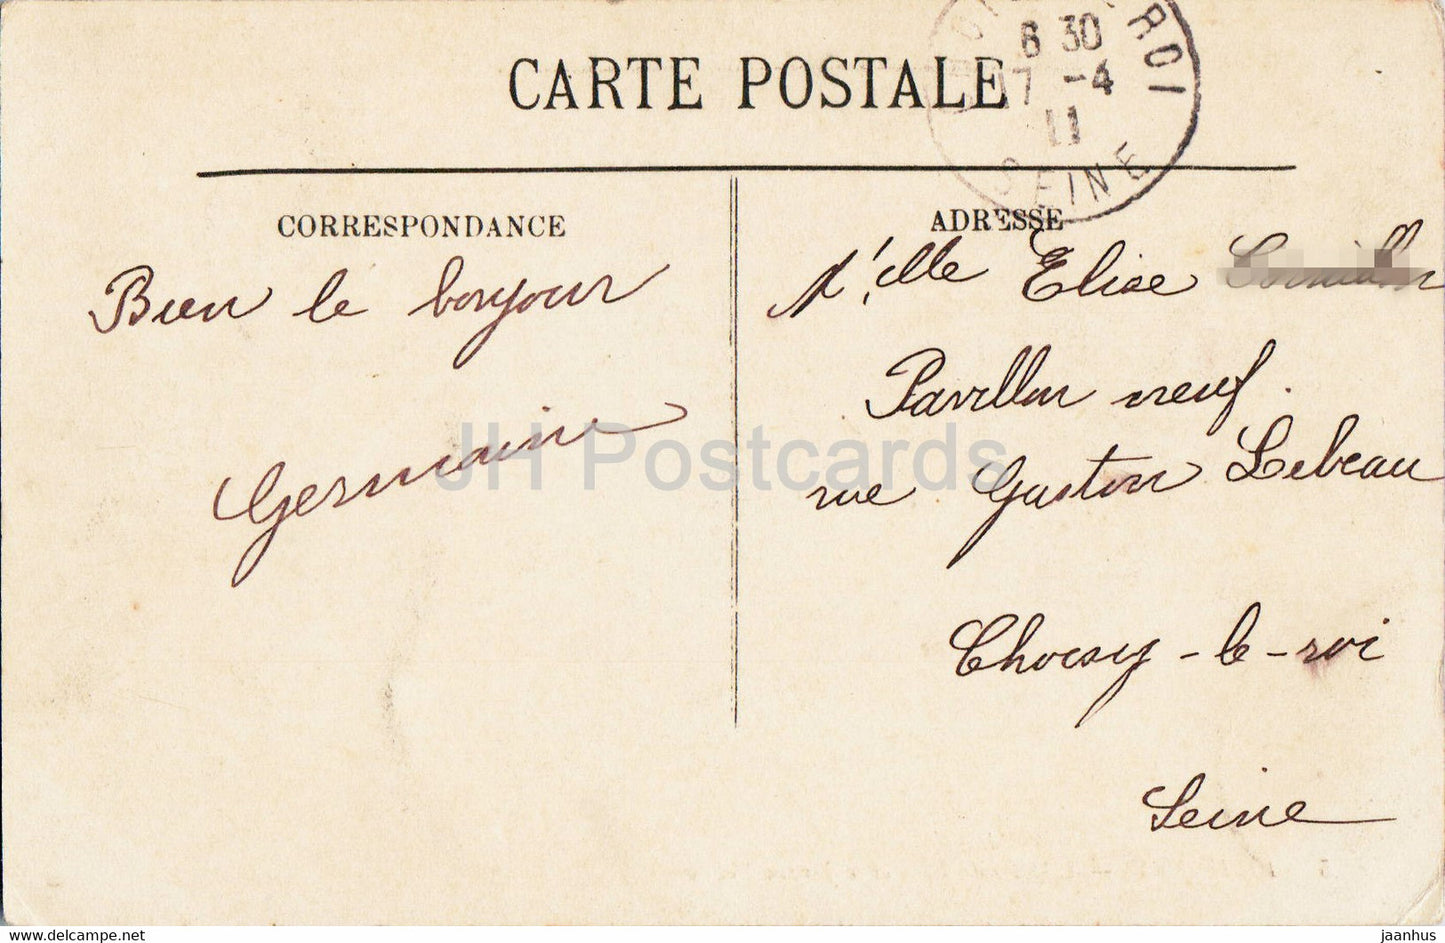 CARTE POSTALE
6 30
17 -4
11
SEINE
CORRESPONDANCE
Bien le bonjour
Germaine
ADRESSE
Melle Elise
Pavillon neuf.
rue Gaston Lebeau
Choisy-le-roi
Seine
JH Postcards
www.delcampe.net
jaanhus